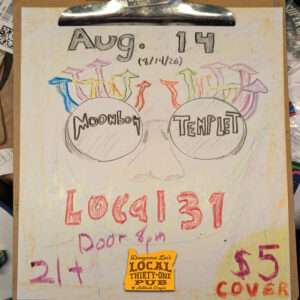 Aug. 14
(8/14/26)
MOONBOM TEMPLET
Local 31
Door 8pm
21+
Dangerous Lee's
LOCAL
THIRTY-ONE
PUB
Ashland, Oregon
$5
COVER